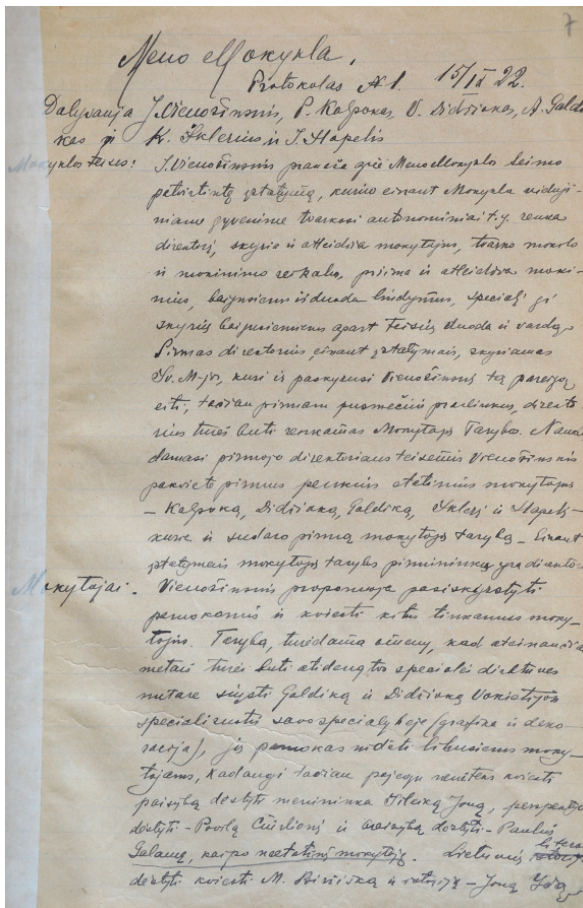 7
Meno Mokykla.
Protokolas N 1. 15/IX 22.
Dalyvauja J. Vienožinskis, P. Kalpokas, V. Didžiokas, A. Galdi
kas ir K. Šklerius ir I. Šlapelis
Mokyklos teisės: J. Vienožinskis praneša apie Meno Mokyklos Seimo
patvirtintą įstatymą, kuriuo einant Mokykla viduji-
niame gyvenime tvarkosi autonominiai t.y. renka
direktorį, skiria ir atleidžia mokytojus, tvarko mokslo
ir mokinimo reikalus, priima ir atleidžia moki-
nius, baigusiems išduoda liudymus, specialį gi
skyrių baigusiems apart teisių duoda ir vardą.
Pirmas direktorius, einant įstatymais, skiriamas
Šv. M-jos, kuri ir paskyrusi Vienožinskį tą pareigą
eiti, tačiau pirmam pusmečiui praslinkus, direkto
rius turės buti renkamas Mokytojų Tarybos. Naudo
damasi pirmojo direktoriaus teisėmis Vienožinskis
pakvietė pirmus penkius etatinius mokytojus
– Kalpoką, Didžioką, Galdiką, Šklerį ir Šlapelį –
kurie ir sudaro pirmą mokytojų tarybą – Einant
įstatymais mokytojų tarybos pirmininkas yra direktor
Mokytojai. Vienožinskis proponuoja pasiskirstyti
pamokomis ir kviesti kitus tinkamus moky-
tojus. Taryba, turėdama omeny, kad ateinančiais
metais turės buti atidengtos specialės dirbtuvės
nutarė siųsti Galdiką ir Didžioką Vokietijon
specializuotis savo specialybėje (grafika ir deko
racija), jų pamokas nidėti likusiems moky-
tojams, kadangi tačiau pajėgų neužteks kviesti
paišybą dėstyti menininką Šileiką Joną, perspektyvą
dėstyti – Povilą Čiurlionį ir braižybą dėstyti – Paulių
Galaunę, kaipo neetatinį mokytoją. Lietuvių litera
dėstyti kviesti M. Biržišką ir istoriją – Joną Yčą